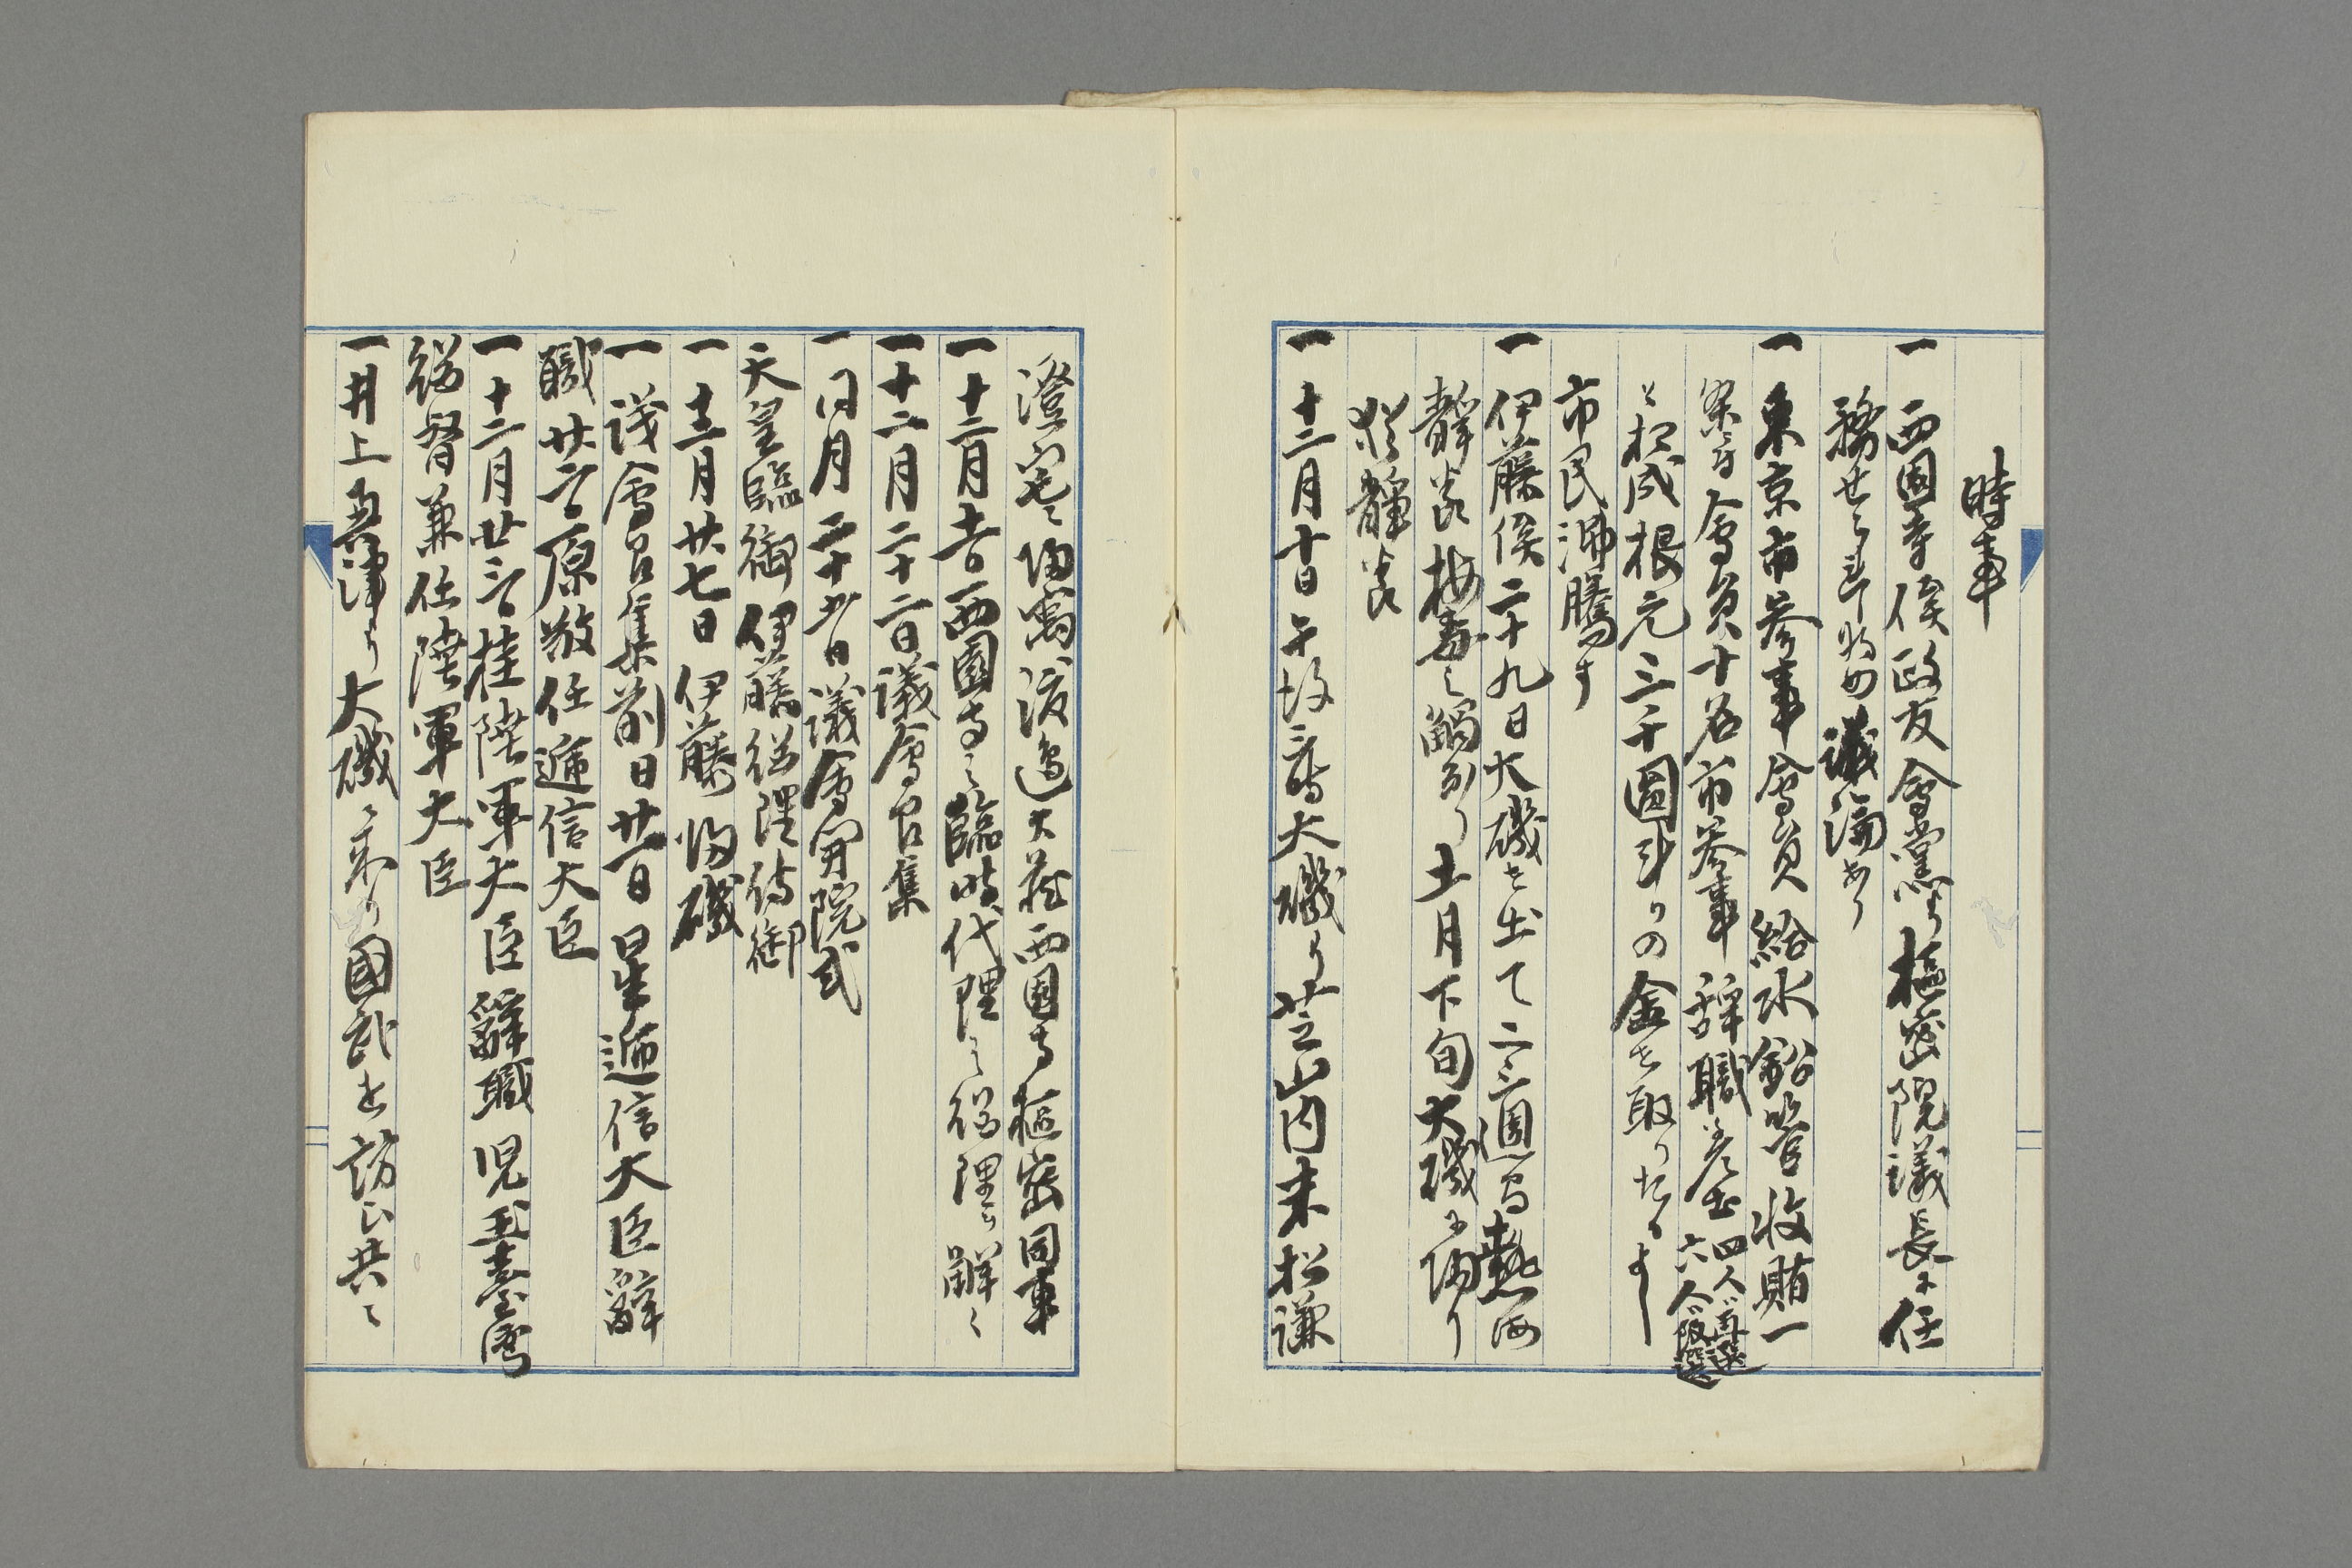 時事
一 西園寺侯政友會黨より樞密院議長に任
務せられ為め議論あり
一 東京市參事會員給水鉛管收賄一
案ニ付會員十名市參事辞職
四人ハ再選
六人ハ改選
と相成根元三千圓計りの金を取りたるよし
市民沸騰す
一 伊藤侯二十九日大磯を出て二三週間熱海
静養梅毒之觸あり 十一月下旬大磯に帰り
猶静養
一 十二月十日午後三時大磯より芝山内末松謙
澄宅ニ帰寓渡邉大蔵西園寺樞密同車
一 十二月 西園寺之臨時代理之総理を解く
一 十二月二十二日議會召集
一 同月二十五日議會開院式
天皇臨御伊藤総理侍御
一 十二月廿七日伊藤帰磯
一 議會召集前日廿一日星逓信大臣辭
職廿二日原敬任逓信大臣
一 十二月廿三日桂陸軍大臣辭職児玉臺湾
総督兼任陸軍大臣
一 井上興津より大磯ニ来り國武を訪ひ共ニ